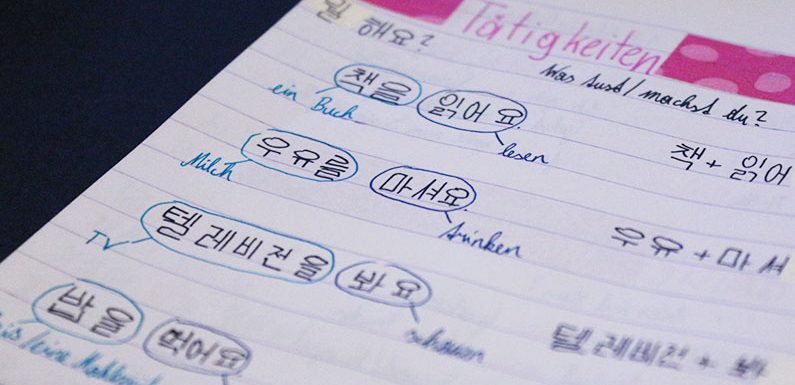 Tätigkeiten
뭘 해요?
Was tust/machst du?
책을 읽어요.
ein Buch lesen
책 + 읽어
우유를 마셔요.
Milch trinken
우유 + 마셔
텔레비전을 봐요
TV schauen
텔레비전 + 봐
밥을 먹어요